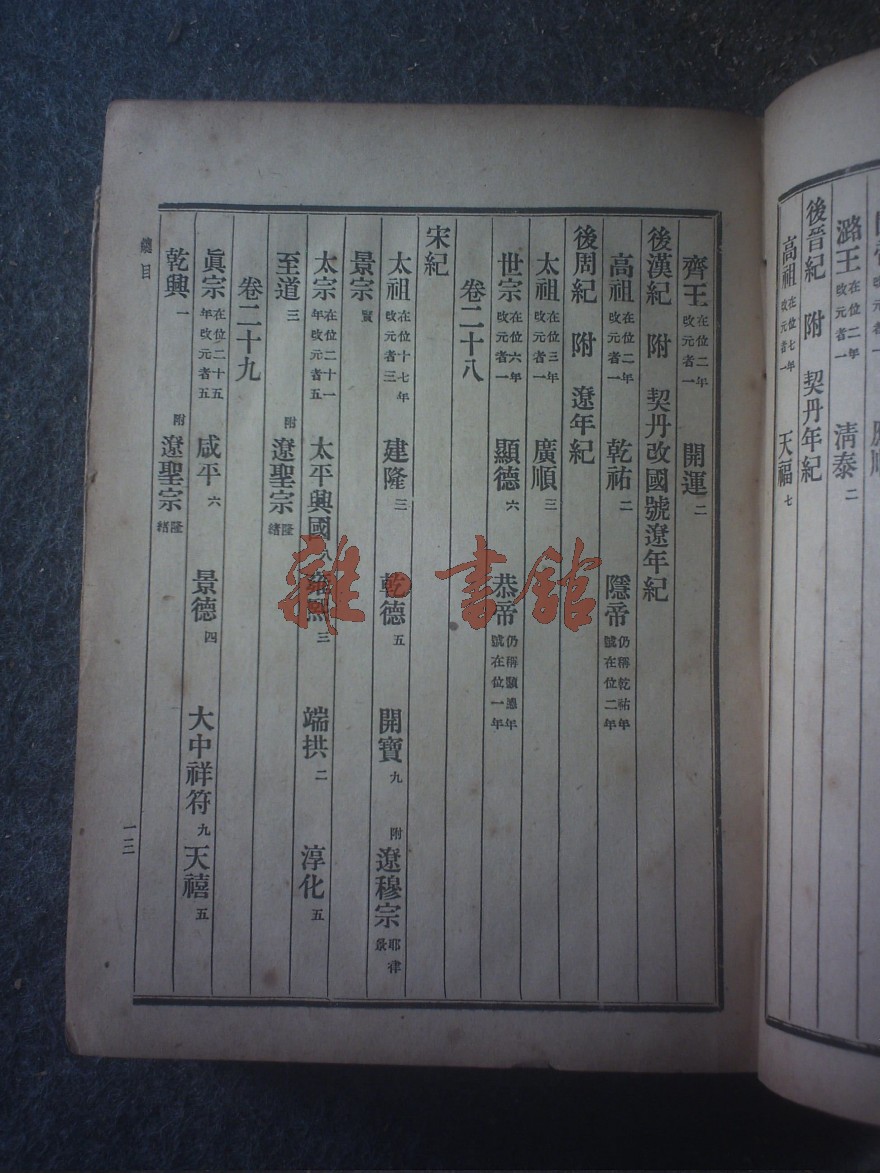 潞王 在位二年改元者一 清泰 二
後晉紀 附 契丹年紀
高祖 在位七年改元者一 天福 七
齊王 在位二年改元者一 開運 二
後漢紀 附 契丹改國號遼年紀
高祖 在位二年改元者一 乾祐 二 隱帝 仍稱乾祐年號在位二年
後周紀 附 遼年紀
太祖 在位三年改元者一 廣順 三
世宗 在位六年改元者一 顯德 六 恭帝 仍稱顯德年號在位一年
卷二十八
宋紀
太祖 在位十七年改元者三 建隆 三 乾德 五 開寶 九 附 遼穆宗 耶律景
景宗 賢
太宗 在位二十一年改元者五 太平興國 八 雍熙 三 端拱 二 淳化 五
至道 三 附 遼聖宗 隆緒
卷二十九
眞宗 在位二十五年改元者五 咸平 六 景德 四 大中祥符 九 天禧 五
乾興 一 附 遼聖宗 隆緒
總目
一三
雜·書館